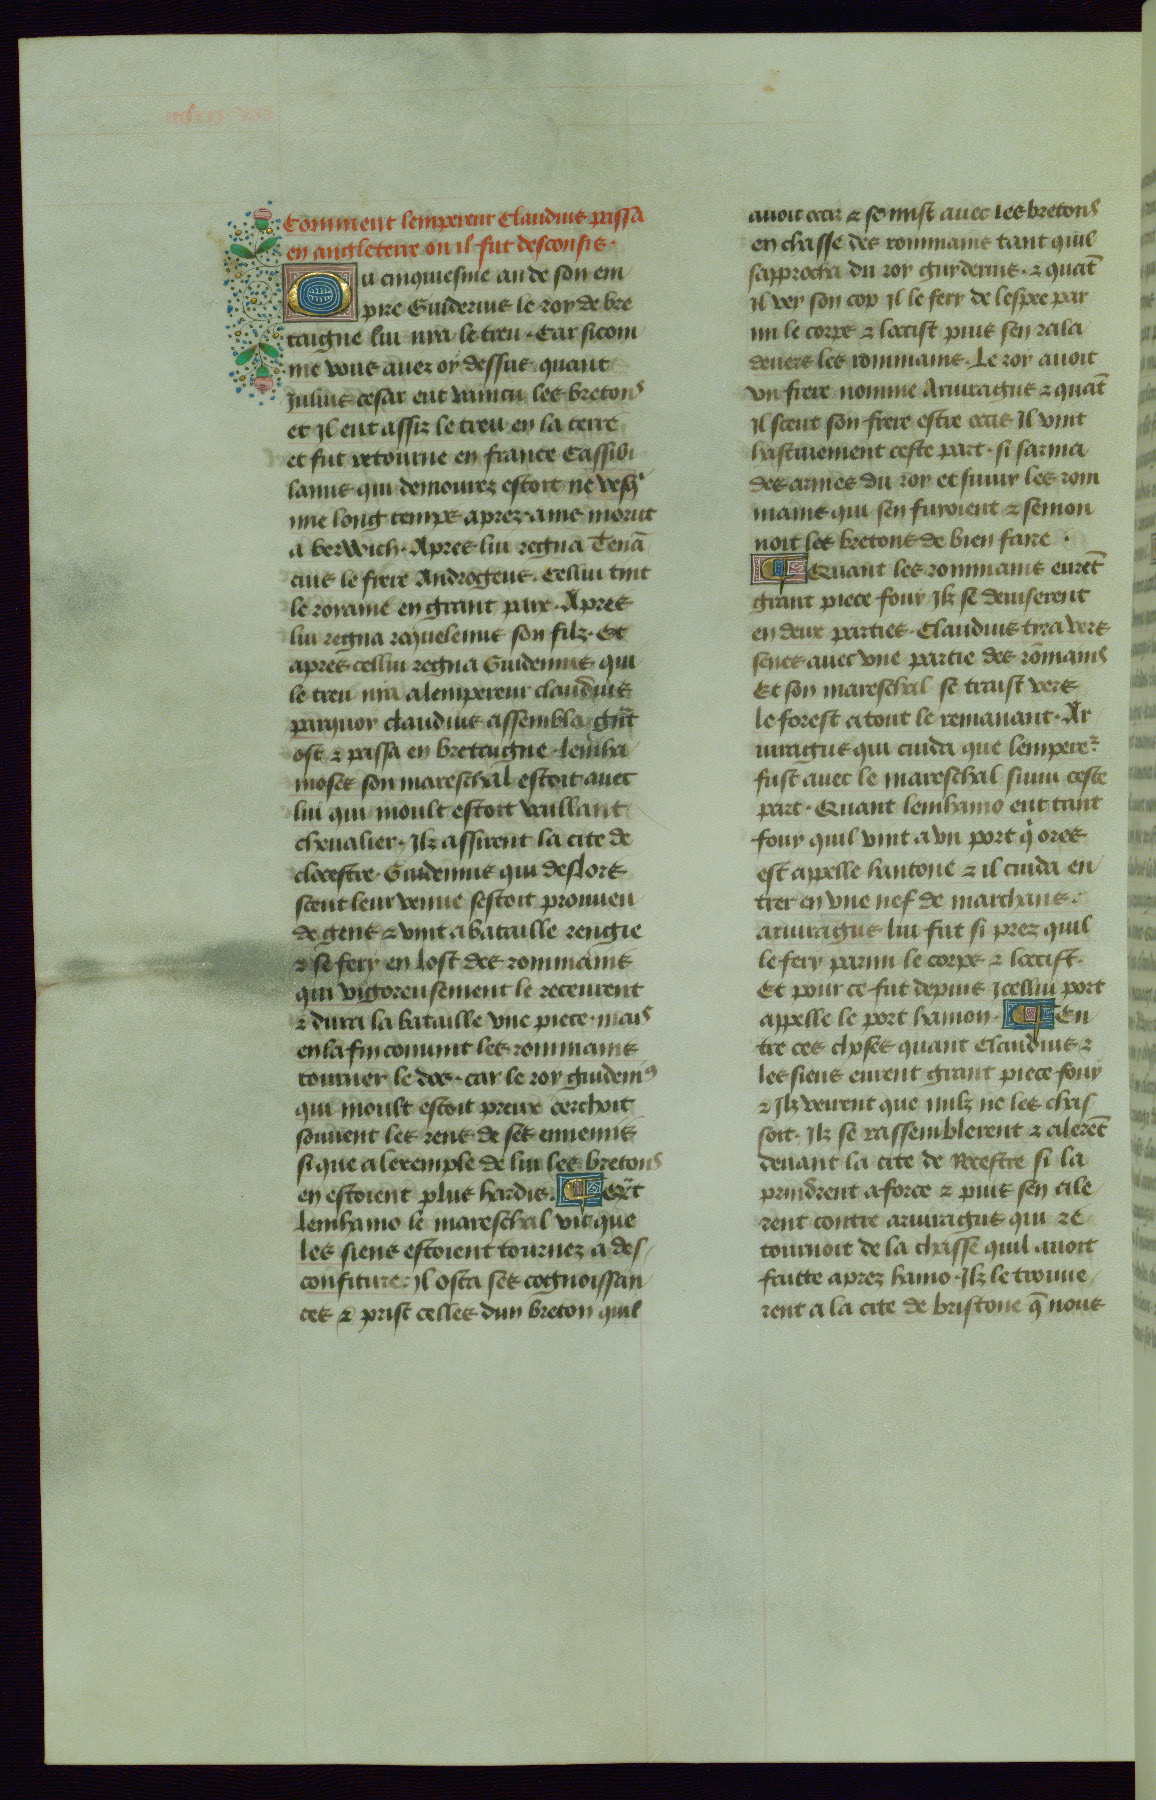 Comment lempereur Claudius passa
en angleterre ou il fut desconfis·
Du cinquiesme an de son em
pire Guiderius le roy de bre
taigne lui nya le treu· Car sicom
me vous auez oy dessus quant
Julius cesar eut vaincu les bretons
et Jl eut assiz le treu en la terre
et fut retourne en france Cassibi
lanus qui demourez estoit ne vesq͛
mie long temps aprez· ains morut
a berwich· Apres lui regna Tenā
cius le frere Androgeus· Cellui tint
le royame en grant paix· Apres
lui regna rquelenus son filz· Et
apres cellui regna Guiderius qui
le treu nya a lempereur claudius
parquoy claudius assembla gr̄t
ost ⁊ passa en bretaigne· lenha
moses son mareschal estoit auec
lui qui moult estoit vaillant
cheualier· Jlz assirent la cite de
clocestre· Guiderius qui des lors
sceut leur venue sestoit pourueu
de gens ⁊ vint a bataille rengie
⁊ se fery en lost des rommains
qui vigoreusement le receurent
⁊ dura la bataille vne piece· mais
en la fin conuint les rommains
tourner le dos· car le roy guideri9
qui moult estoit preux cerchoit
souuent les rens de ses ennemis
si que a lexemple de lui les bretons
en estoient plus hardis· Et q̄t
lenhamo le mareschal vit que
les siens estoient tournez a des
confiture· Jl osta ses cognoissan
ces ⁊ prist celles dun breton quil
auoit occiz ⁊ se mist auec les bretons
en chasse des rommains tant quil
sapprocha du roy guyderius· ⁊ quāt
il vey son cop Jl le fery de lespee par
mi le corps ⁊ loccist puis sen rala
deuers les rommains· Le roy auoit
vn frere nomme Aruiragus ⁊ quāt
Jl sceut son frere estre occis Jl vint
hastiuement ceste part· si sarma
des armes du roy et suiuy les rom
mains qui sen fuioient ⁊ semon
noit les bretons de bien faire·
Quant les rommains eurēt
grant piece fouy Jlz se deuiserent
en deux parties· Claudius tyra vers
senes auec vne partie des rōmains
Et son mareschal se traist vers
le forest a tout le remanant· Ar
uiragus qui cuida que lempere⁊
fust auec le mareschal siuui ceste
part· Quant lenhamo eut tant
fouy quil vint a vn port q̄ ores
est appelle hantone ⁊ il cuida en
trer en vne nef de marchans·
aruiragus lui fut si prez quil
le fery parmi le corps ⁊ loccist·
Et pour ce fut depuis Jcellui port
appelle le port hamon· En
tre ces choses quant Claudius ⁊
les siens eurent grant piece fouy
⁊ Jlz veirent que nulz ne les chas
soit· Jlz se rassemblerent ⁊ alerēt
deuant la cite de Rocestre si la
prindrent a force ⁊ puis sen ale
rent contre aruiragus qui re
tournoit de la chasse quil auoit
faitte aprez hamo· Jlz le trouue
rent a la cite de bristone q̄ nous